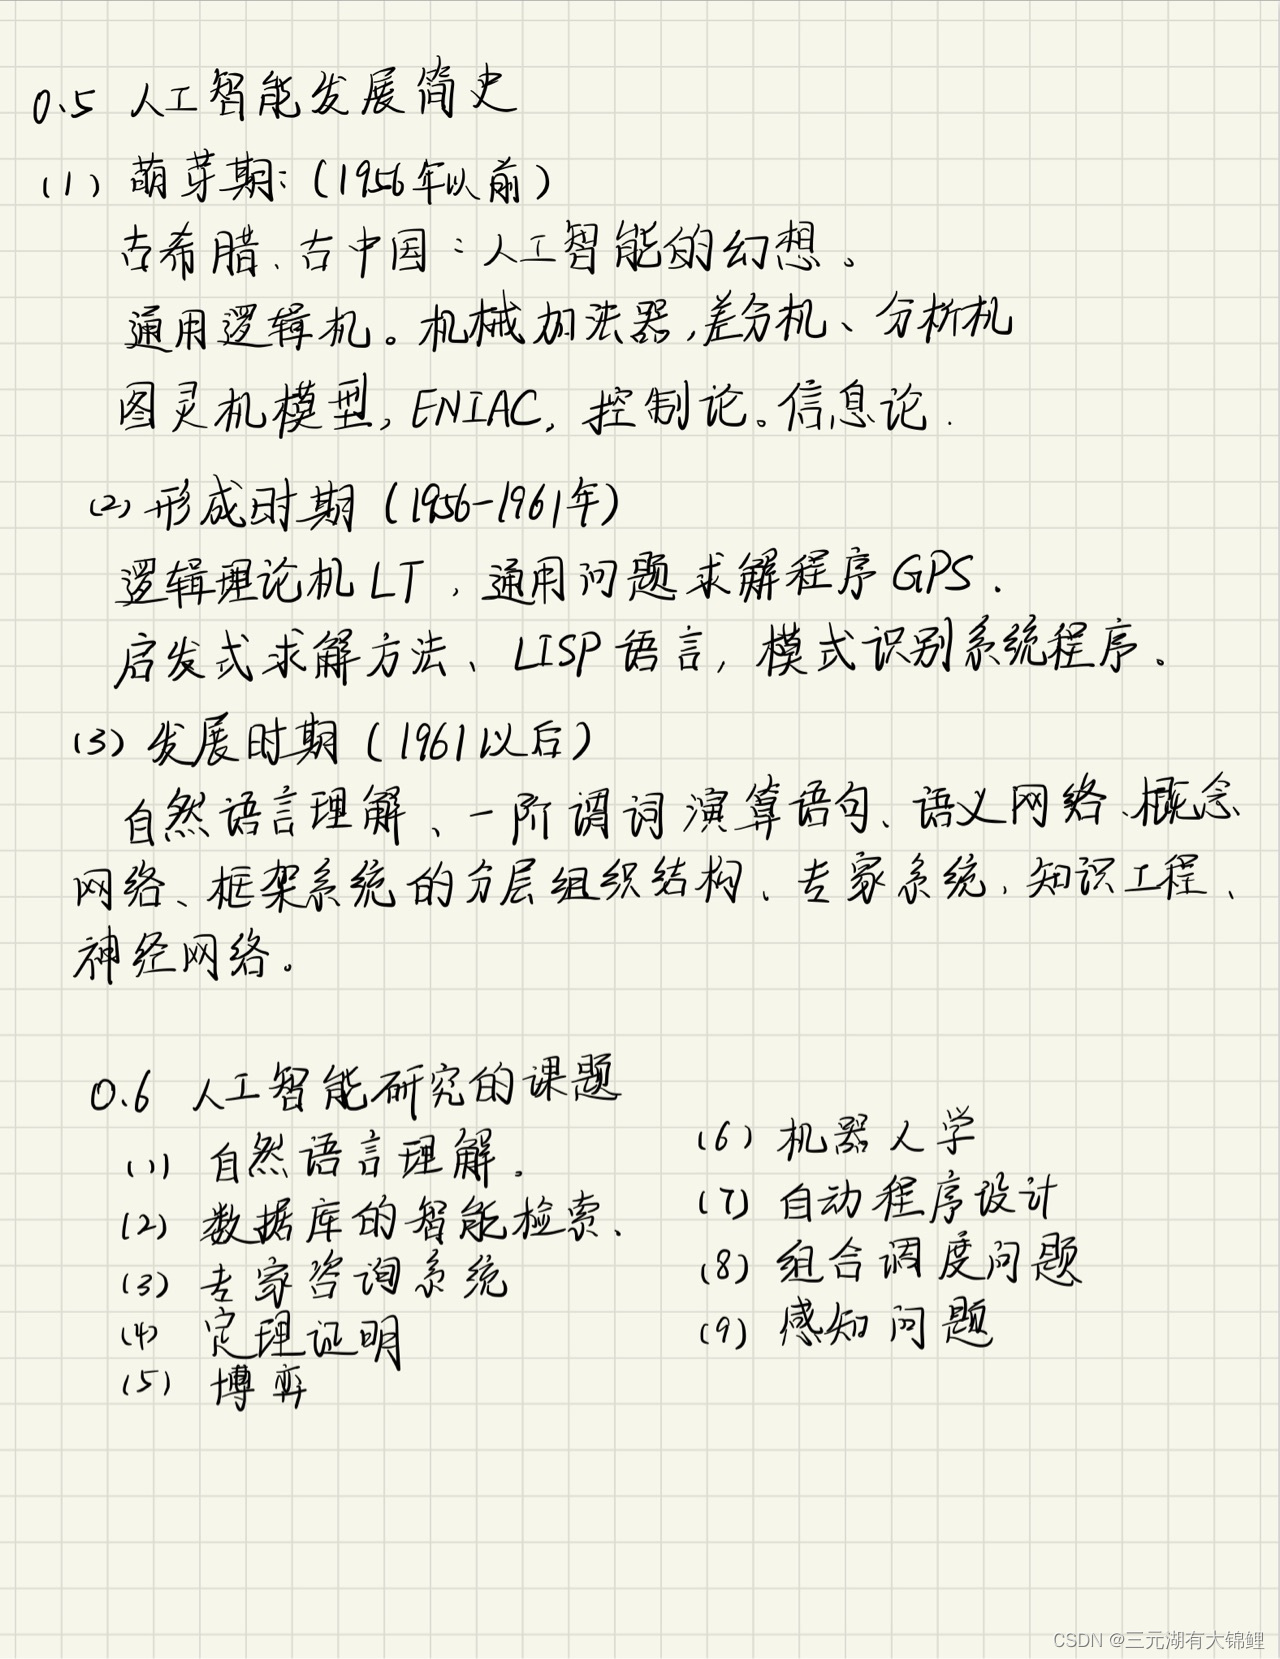 0.5 人工智能发展简史
(1) 萌芽期:(1956年以前)
古希腊、古中国:人工智能的幻想。
通用逻辑机。机械加法器,差分机、分析机
图灵机模型,ENIAC,控制论。信息论.
(2) 形成时期(1956-1961年)
逻辑理论机LT,通用问题求解程序GPS.
启发式求解方法、LISP语言,模式识别系统程序。
(3) 发展时期(1961以后)
自然语言理解、一阶谓词演算语句、语义网络、概念
网络、框架系统的分层组织结构、专家系统、知识工程、
神经网络。
0.6 人工智能研究的课题
(1) 自然语言理解.
(2) 数据库的智能检索、
(3) 专家咨询系统
(4) 定理证明
(5) 博弈
(6) 机器人学
(7) 自动程序设计
(8) 组合调度问题
(9) 感知问题
CSDN @三元湖有大锦鲤